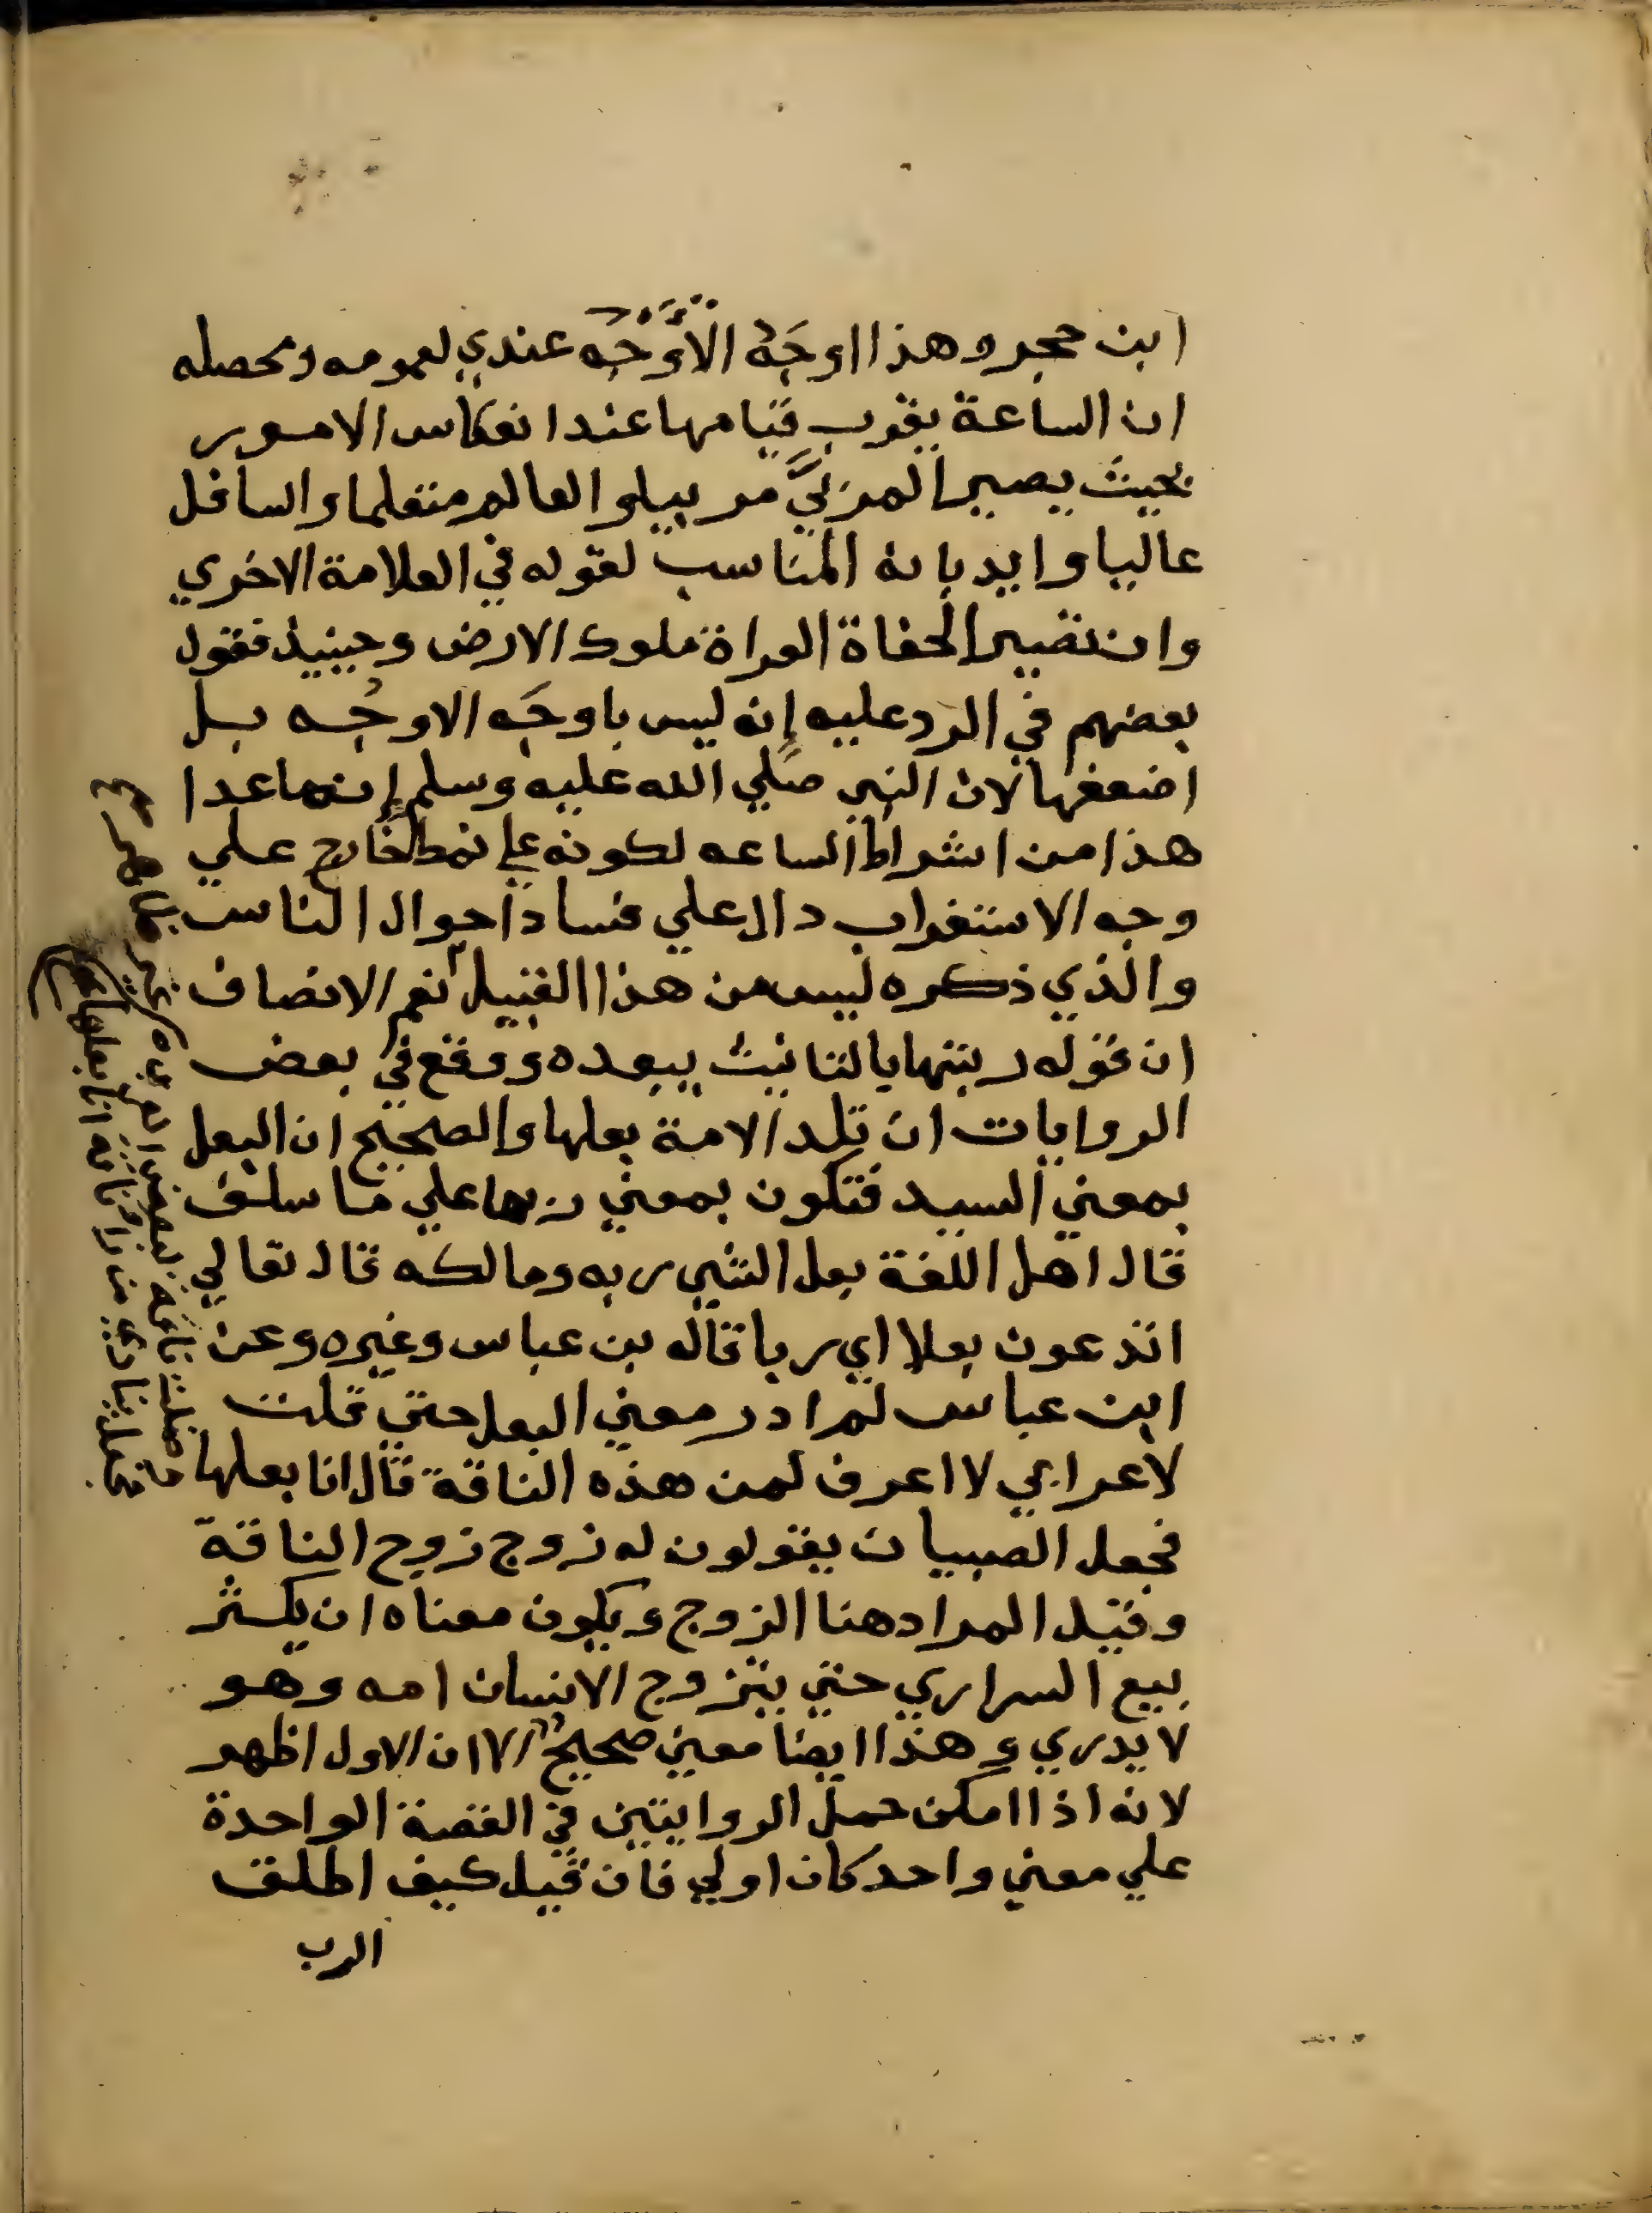 ابن حجر وهذا اوجَهُ الأَوْجُه عندي لعمومه ومحصله
ان الساعة يقرب قيامها عند انعكاس الامور
بحيث يصير المربَّي مربيا والعالم متعلما والسافل
عاليا وايد بانه المناسب لقوله في العلامة الاخري
وان تصير الحفاة العراة ملوك الارض وحينيذ فقول
بعضهم في الرد عليه إنه ليس باوجَه الاوجُه بل
اضعفها لان النبي صلي الله عليه وسلم إنما عد
هذا من اشراط الساعه لكونه علي نمط خارج علي
وجه الاستغراب دال علي فساد احوال الناس
والذي ذكره ليس من هذا القبيل نعم الانصاف
ان قوله ربتها بالتانيث يبعده ووقع في بعض
الروايات ان تلد الامة بعلها والصحيح ان البعل
بمعني السيد فتكون بمعني ربها علي ما سلف
قال اهل اللغة بعل الشي ربه ومالكه قال تعالي
اتدعون بعلا اي ربا قاله بن عباس وغيره وعن
ابن عباس لم ادر معني البعل حتي قلت
لاعرابي لا اعرف لمن هذه الناقة قال انا بعلها
فجعل الصبيان يقولون له زوج زوج الناقة
وقيل المراد هنا الزوج ويكون معناه ان يكثر
بيع السراري حتي يتزوج الانسان امه وهو
لا يدري وهذا ايضا معني صحيح الا ان الاول اظهر
لانه اذا امكن حمل الروايتين في القصة الواحدة
علي معني واحد كان اولي فان قيل كيف اطلق
الرب
ضلت ناقة لبعض العرب
فجعل ينادي من راي ناقة انا بعلها